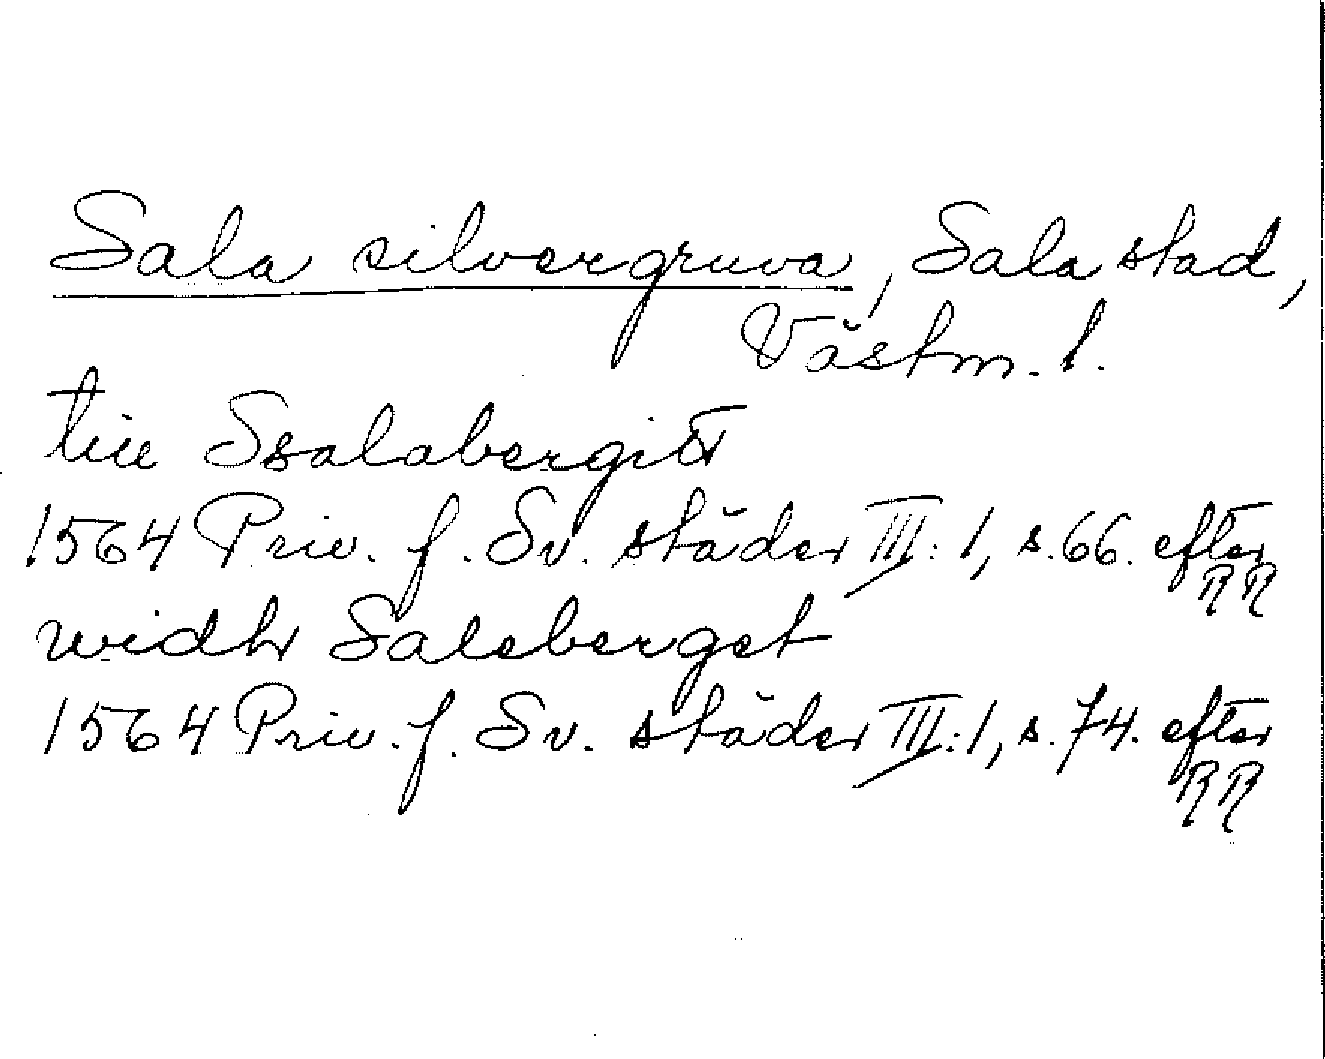 Sala silvergruva, Sala stad,
Västm. l.
tiil Ssalabergitt
1564 Priv. f. Sv. städer III: 1, s. 66. efter
RR
widh Saleberget
1564 Priv. f. Sv. städer III: 1, s. 74. efter
RR